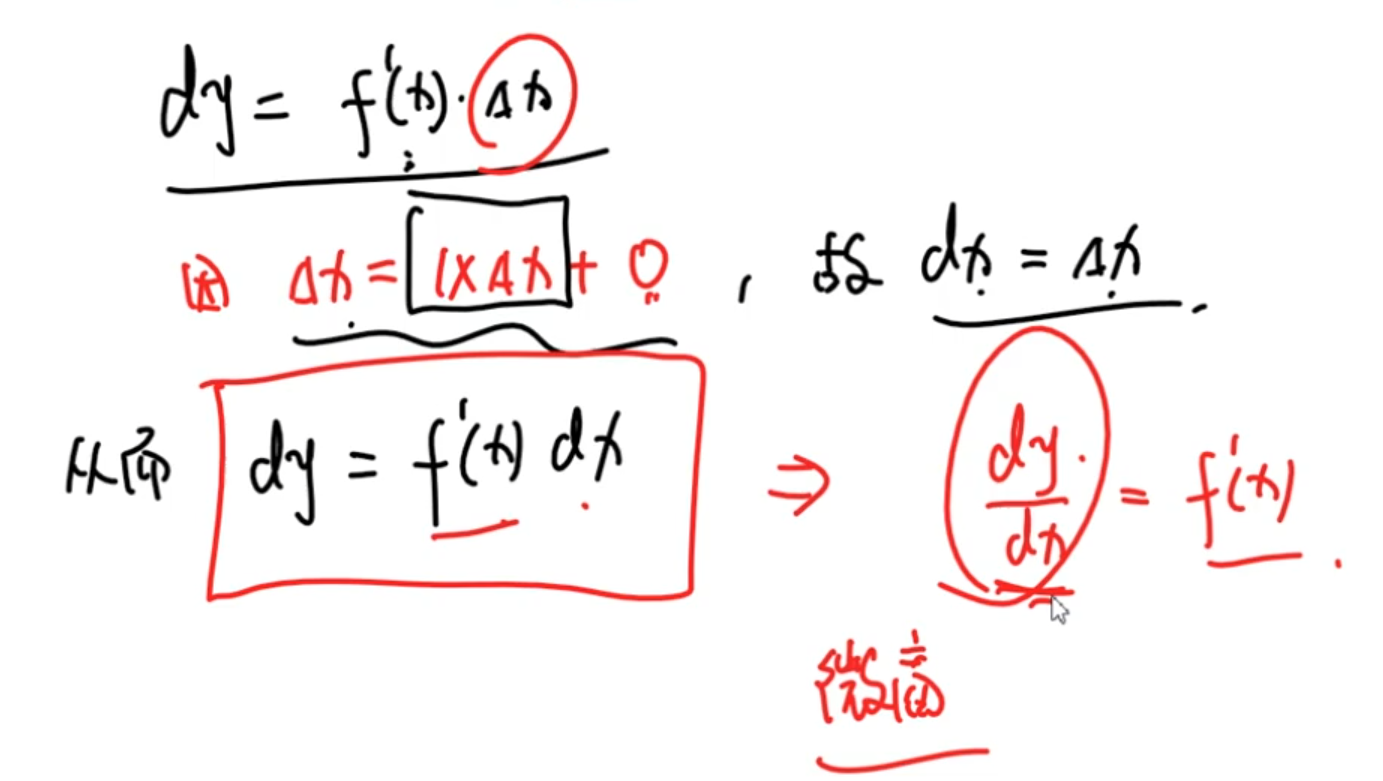 dy = f'(x)·Δx
(*) Δx = 1×Δx + 0 , 故 dx = Δx.
从而 dy = f'(x) dx ⇒ dy/dx = f'(x).